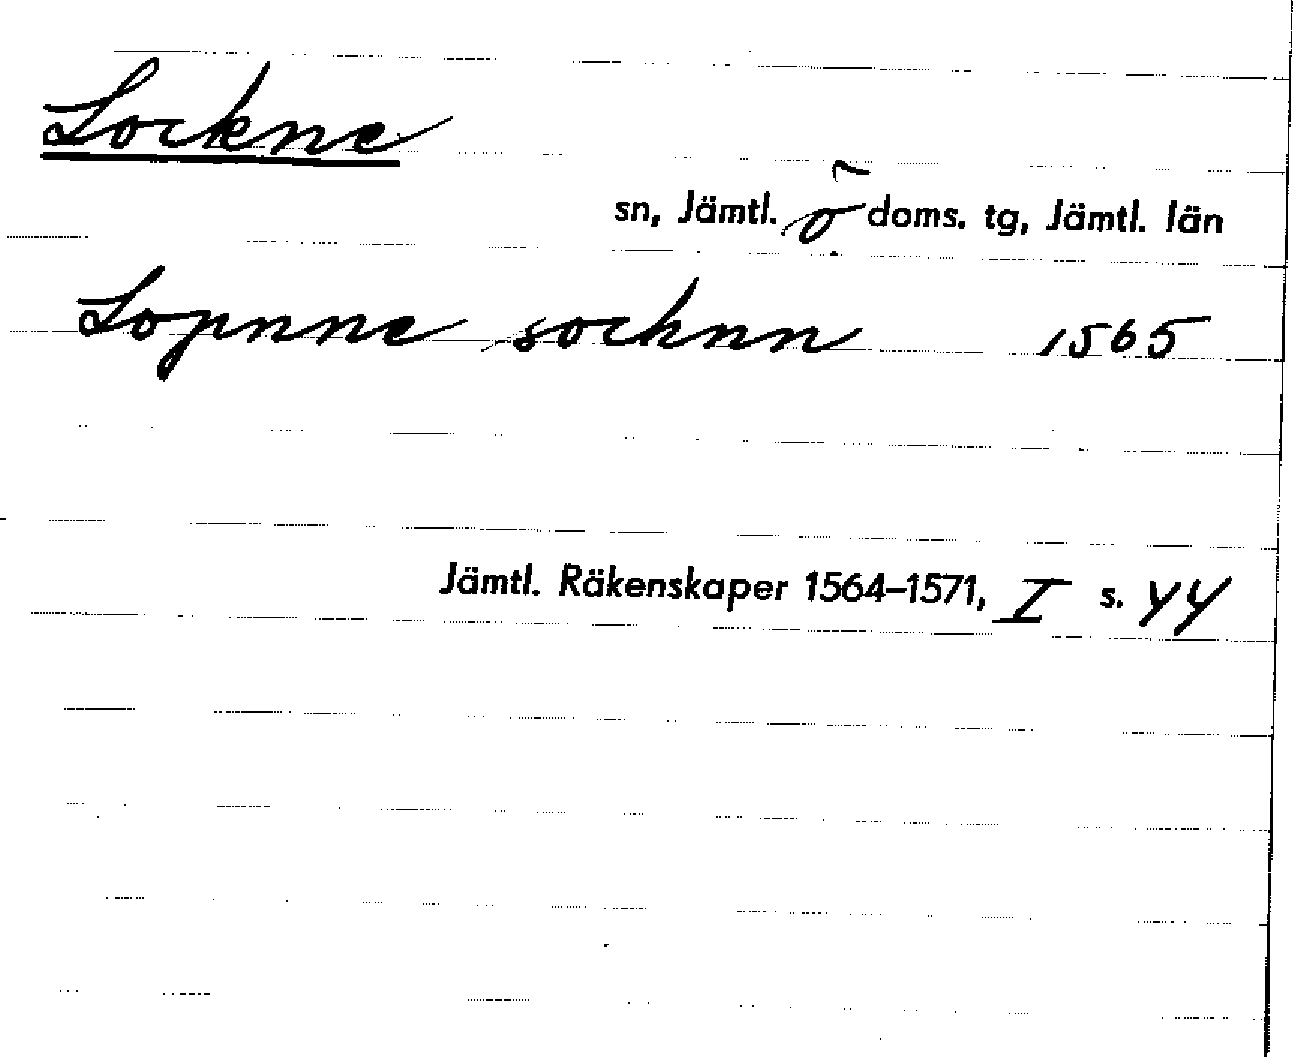 Lockne
sn, Jämtl. ö doms. tg, Jämtl. län
Lopnne socknn 1565
Jämtl. Räkenskaper 1564–1571, I s. 44